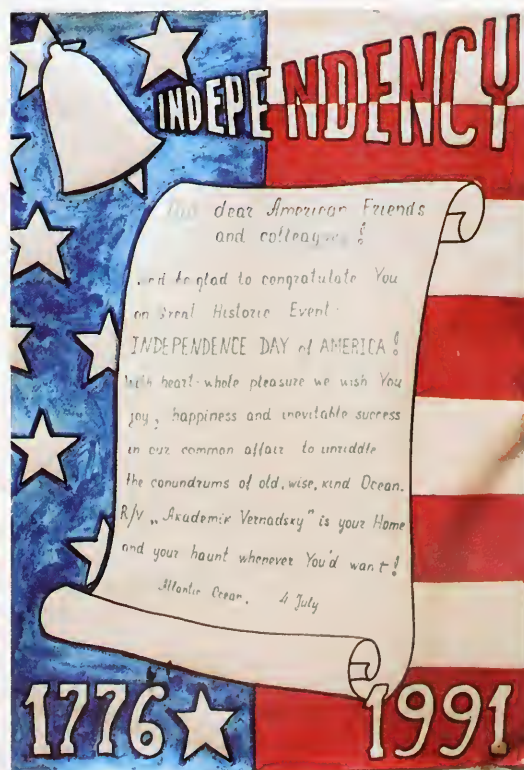 INDEPENDENCY
dear American Friends
and colleagues!
be glad to congratulate You
on Great Historic Event -
INDEPENDENCE DAY of AMERICA!
With heart-whole pleasure we wish You
joy, happiness and inevitable success
in our common affair to unriddle
the conundrums of old, wise, kind Ocean.
R/V „Akademik Vernadsky" is your Home
and your haunt whenever You'd want!
Atlantic Ocean. 4 July
1776 1991